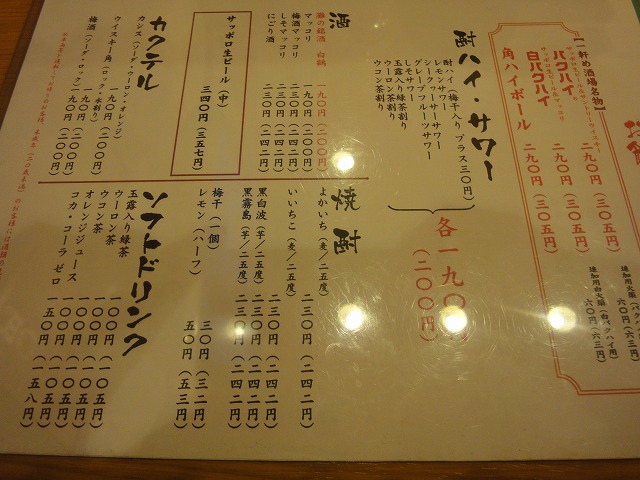 【一軒め酒場名物】
バクハイ 二九〇円(三〇五円)
白バクハイ 二九〇円(三〇五円)
角ハイボール 二九〇円(三〇五円)
追加用白火薬(白バクハイ用)
六〇円(六三円)
六〇円(六三円)
酎ハイ・サワー
酎ハイ(梅干入り プラス三〇円)
レモンサワー
シークヮーサーサワー
グレープフルーツサワー
しそサワー
玉露入り緑茶割り
ウーロン茶割り
ウコン茶割り
各一九〇円
(二〇〇円)
酒
灘の銘酒 白鶴 一九〇円(二〇〇円)
マッコリ 一九〇円(二〇〇円)
梅酒マッコリ 二三〇円(二四二円)
しそマッコリ 二三〇円(二四二円)
にごり酒 二三〇円(二四二円)
サッポロ生ビール(中)
三四〇円(三五七円)
カクテル
カシス(ソーダ・ウーロン・オレンジ)
一九〇円(二〇〇円)
ウイスキー角(ロック・水割り)
一九〇円(二〇〇円)
梅酒(ソーダ・ロック)一九〇円(二〇〇円)
焼酎
よかいち(麦/二五度) 二三〇円(二四二円)
いいちこ(麦/二五度) 二三〇円(二四二円)
黒白波(芋/二五度) 二三〇円(二四二円)
黒霧島(芋/二五度) 二三〇円(二四二円)
梅干(一個) 三〇円(三二円)
レモン(ハーフ) 五〇円(五三円)
ソフトドリンク
玉露入り緑茶 一〇〇円(一〇五円)
ウーロン茶 一〇〇円(一〇五円)
ウコン茶 一〇〇円(一〇五円)
オレンジジュース 一〇〇円(一〇五円)
コカ・コーラ ゼロ 一五〇円(一五八円)